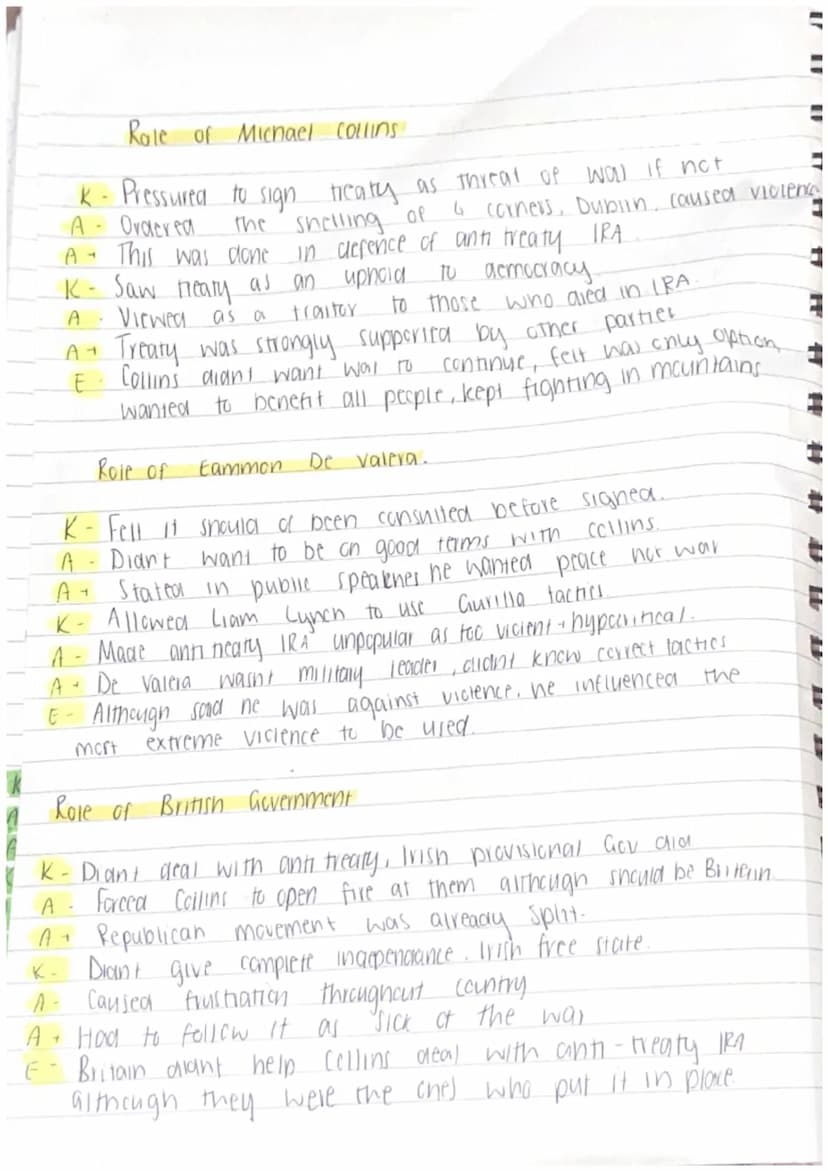 Role of Michael Collins
K - Pressured to sign treaty as threat of war if not
A - Ordered the shelling of 4 corners, Dublin. caused violence
A+ This was done in defence of anti treaty IRA
K - Saw treaty as an uphold to democracy
A - Viewed as a traitor to those who died in IRA.
A+ Treaty was strongly supported by other parties
E - Collins didnt want war to continue, felt was only option,
wanted to benefit all people, kept fighting in mountains
Role of Eammon De Valera.
K - Fell it should of been consulted before signed.
A - Didnt want to be on good terms with collins.
A+ Stated in public he wanted peace not war
K - Allowed Liam Lynch to use Gurilla tactics
A - Made anti treaty IRA unpopular as too violent + hypocritical.
A+ De Valera wasnt military leader, didnt know correct tactics
E - Although said he was against violence, he influenced the
most extreme violence to be used.
K
A
Role of British Government
K - Didnt deal with anti treaty, Irish provisional Gov did
A - Forced Collins to open fire at them although should be
A+ Republican movement was already split.
K - Didnt give complete independance. Irish free state.
A - Caused frustration throughout country
A+ Had to follow it as sick of the war
E - Britain didnt help Collins deal with anti-treaty IRA
although they were the ones who put it in place.